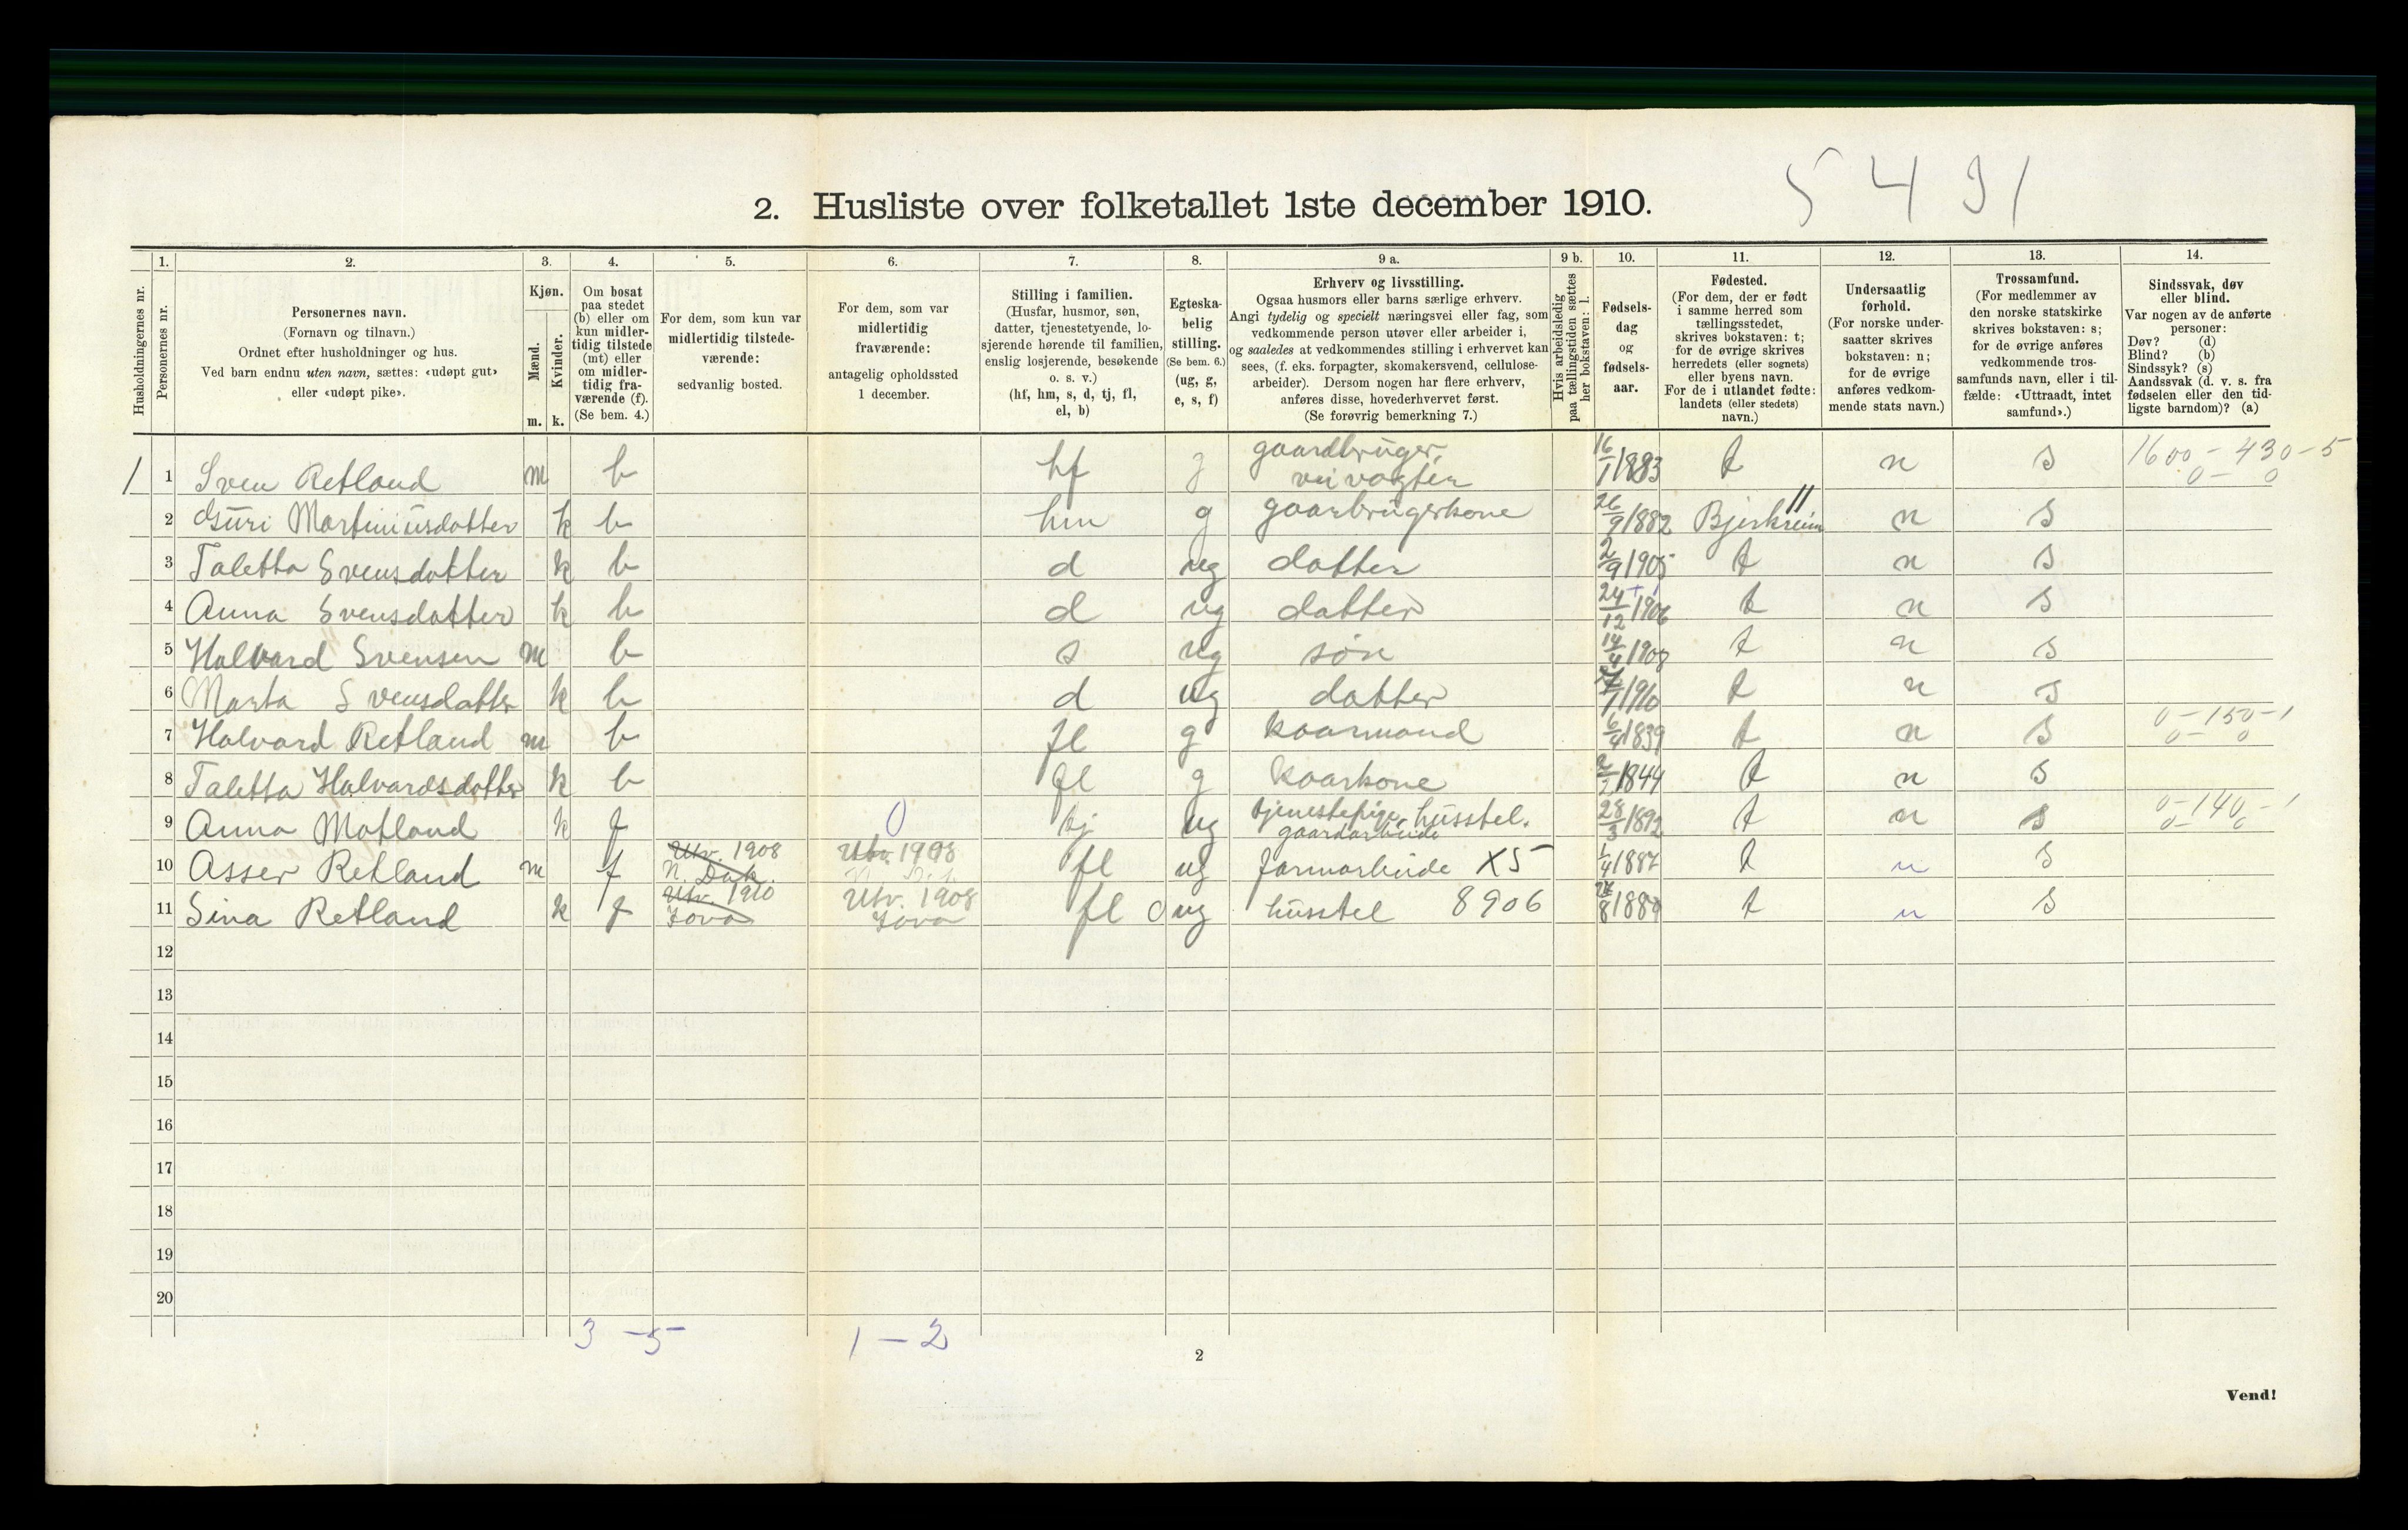 5491
2. Husliste over folketallet 1ste december 1910.
1. 2. 3. 4. 5. 6. 7. 8. 9 a. 9 b. 10. 11. 12. 13. 14.
Husholdningernes nr.
Personernes nr.
Personernes navn.
(Fornavn og tilnavn.)
Ordnet efter husholdninger og hus.
Ved barn endnu uten navn, sættes: «udøpt gut»
eller «udøpt pike».
Kjøn.
Mænd.
Kvinder.
m. k.
Om bosat
paa stedet
(b) eller om
kun midler-
tidig tilstede
(mt) eller
om midler-
tidig fra-
værende (f).
(Se bem. 4.)
For dem, som kun var
midlertidig tilstede-
værende:
sedvanlig bosted.
For dem, som var
midlertidig
fraværende:
antagelig opholdssted
1 december.
Stilling i familien.
(Husfar, husmor, søn,
datter, tjenestetyende, lo-
sjerende hørende til familien,
enslig losjerende, besøkende
o. s. v.)
(hf, hm, s, d, tj, fl,
el, b)
Egteska-
belig
stilling.
(Se bem. 6.)
(ug, g,
e, s, f)
Erhverv og livsstilling.
Ogsaa husmors eller barns særlige erhverv.
Angi tydelig og specielt næringsvei eller fag, som
vedkommende person utøver eller arbeider i,
og saaledes at vedkommendes stilling i erhvervet kan
sees, (f. eks. forpagter, skomakersvend, cellulose-
arbeider). Dersom nogen har flere erhverv,
anføres disse, hovederhvervet først.
(Se forøvrig bemerkning 7.)
Hvis arbeidsledig
paa tællingstiden sættes
her bokstaven: l.
Fødsels-
dag
og
fødsels-
aar.
Fødested.
(For dem, der er født
i samme herred som
tællingsstedet,
skrives bokstaven: t;
for de øvrige skrives
herredets (eller sognets)
eller byens navn.
For de i utlandet fødte:
landets (eller stedets)
navn.)
Undersaatlig
forhold.
(For norske under-
saatter skrives
bokstaven: n;
for de øvrige
anføres vedkom-
mende stats navn.)
Trossamfund.
(For medlemmer av
den norske statskirke
skrives bokstaven: s;
for de øvrige anføres
vedkommende tros-
samfunds navn, eller i til-
fælde: «Uttraadt, intet
samfund».)
Sindssvak, døv
eller blind.
Var nogen av de anførte
personer:
Døv? (d)
Blind? (b)
Sindssyk? (s)
Aandssvak (d. v. s. fra
fødselen eller den tid-
ligste barndom)? (a)
1 1 Sven Retland m b hf g gaardbruger, veivogter 16/1 1883 t n s 1600-430-5 0-0
2 Guri Martiniusdotter k b hm g gaarbrugerkone 26/9 1882 Bjerkreim n s
3 Taletta Svensdatter k b d ug datter 2/9 1905 t n s
4 Anna Svensdatter k b d ug datter 24/12 1906 t n s
5 Halvard Svensen m b s ug søn 14/4 1908 t n s
6 Marta Svensdatter k b d ug datter 1910 t n s
7 Halvard Retland m b fl g kaarmand 6/4 1839 t n s 0-150-1 0-0
8 Taletta Halvardsdatter k b fl g kaarkone 1844 t n s
9 Anna Matland k f 0 tj ug tjenestepige, husstel. gaardarbeide 28/3 1892 t n s 0-140-1 0-0
10 Asser Retland m f Utv. 1908 N. Dak. Utv. 1908 fl ug farmarbeide X5 1/4 1887 t n s
11 Sina Retland k f Utv. 1910 Iova Utv. 1908 Iova fl 0 ug husstel 8906 1889 t n s
12
13
14
15
16
17
18
19
20
3 - 5 1 - 2
2
Vend!